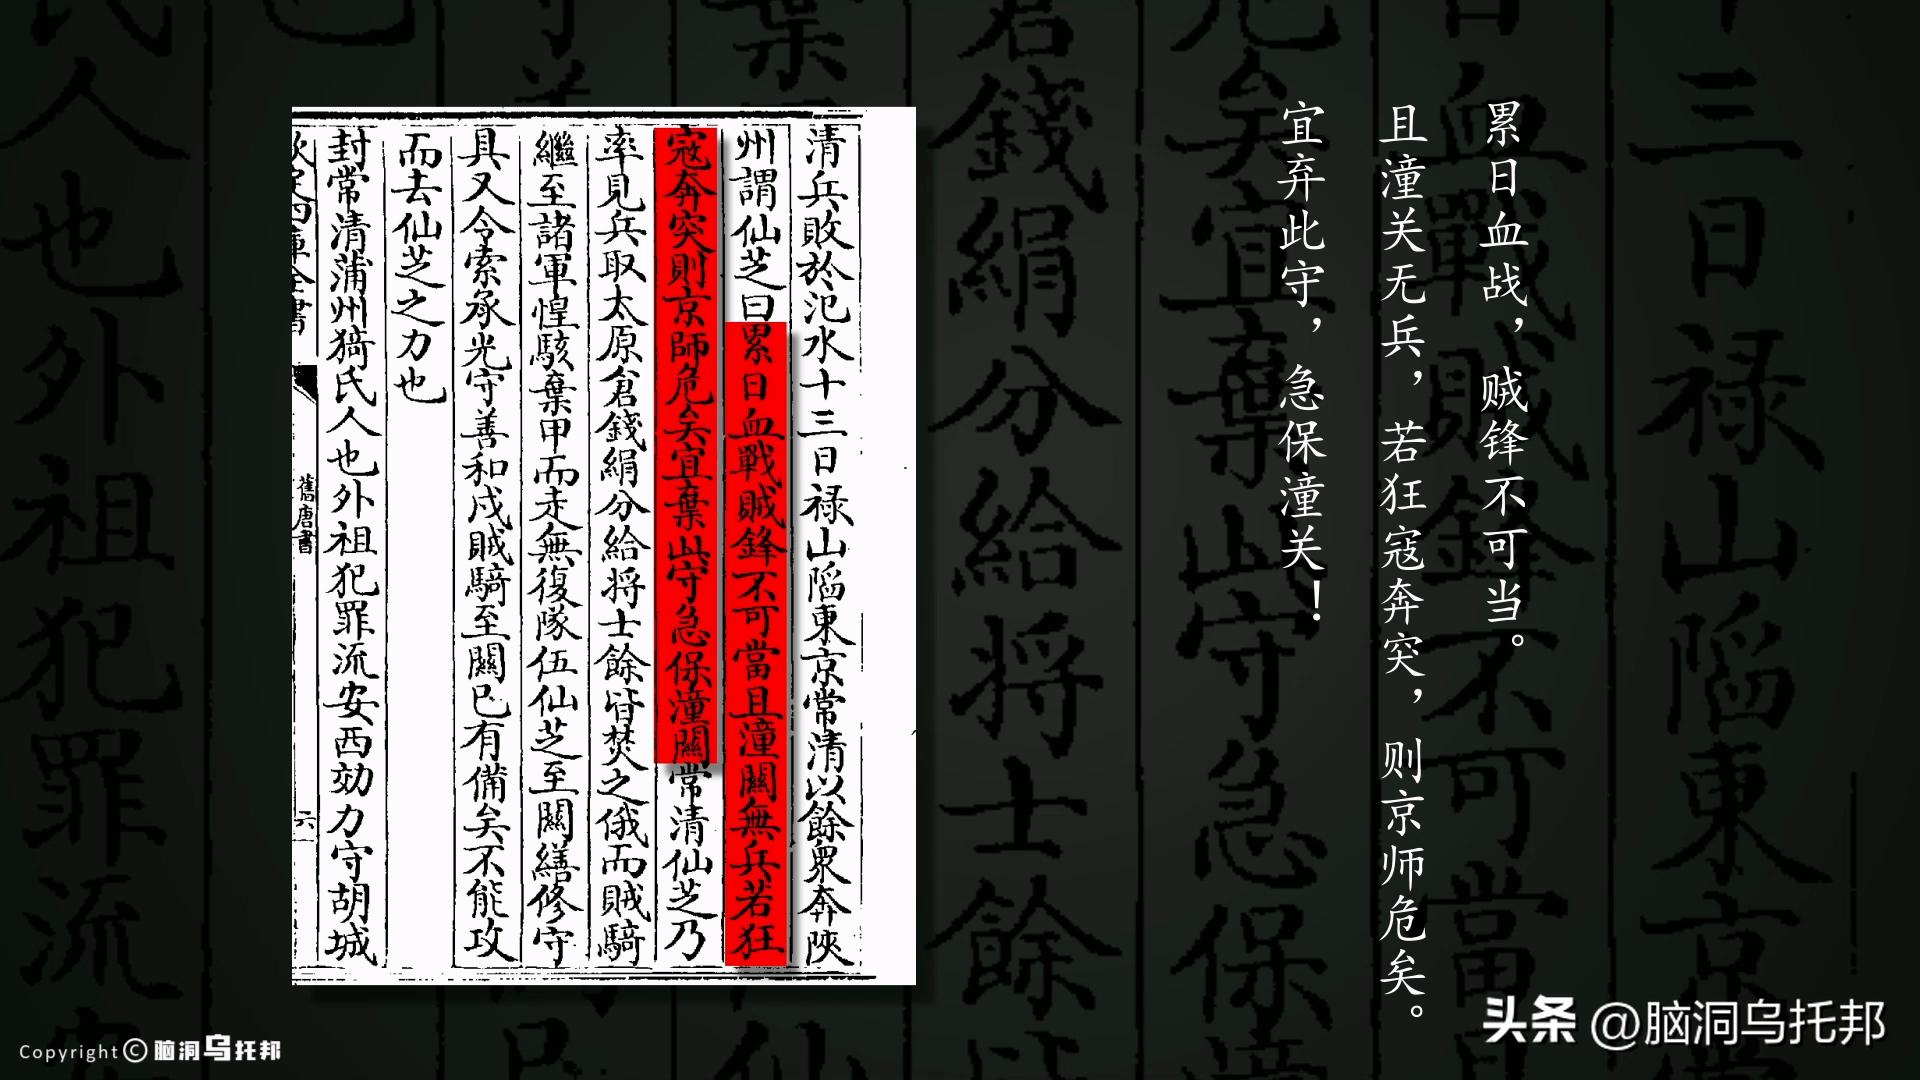 累日血战，贼锋不可当。
且潼关无兵，若狂寇奔突，则京师危矣。
宜弃此守，急保潼关！
清兵敗於汜水十三日禄山陷東京常清以餘衆奔陝
州謂仙芝曰累日血戰賊鋒不可當且潼關無兵若狂
寇奔突則京師危矣宜棄此守急保潼關常清仙芝乃
率見兵取太原倉錢絹分給将士餘皆焚之俄而賊騎
繼至諸軍惶駭棄甲而走無復隊伍仙芝至關繕修守
具又令索承光守善和戍賊騎至關已有備矣不能攻
而去仙芝之力也
封常清蒲州猗氏人也外祖犯罪流安西効力守胡城
欽定四庫全書
舊唐書
六
Copyright © 脑洞乌托邦
头条 @脑洞乌托邦